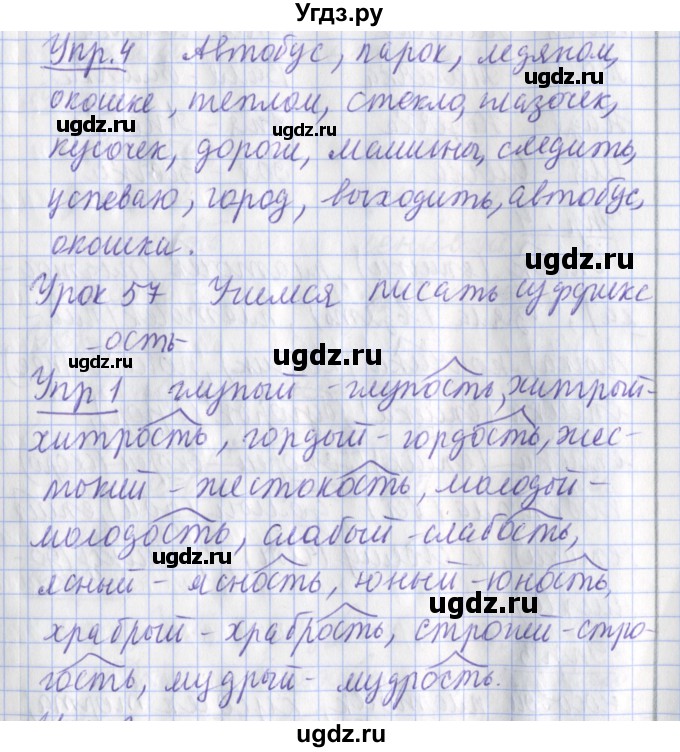 Угдз.ру
Упр.4 Автобус, парок, ледяном,
окошке, теплом, стекло, глазочек,
ugdz.ru ugdz.ru ugdz.ru
кусочек, дороги, машины, следить,
успеваю, город, выходить, автобус,
ugdz.ru ugdz.ru
окошки.
Урок 57 Учимся писать суффикс
ugdz.ru
-ость-
ugdz.ru ugdz.ru
Упр 1 глупый - глупость, хитрый-
хитрость, гордый - гордость, жес-
ugdz.ru ugdz.ru
токий - жестокость, молодой -
молодость, слабый - слабость,
ugdz.ru
ясный - ясность, юный - юность,
ugdz.ru
храбрый - храбрость, строгий - стро-
ugdz.ru
гость, мудрый - мудрость.
ugdz.ru ugdz.ru